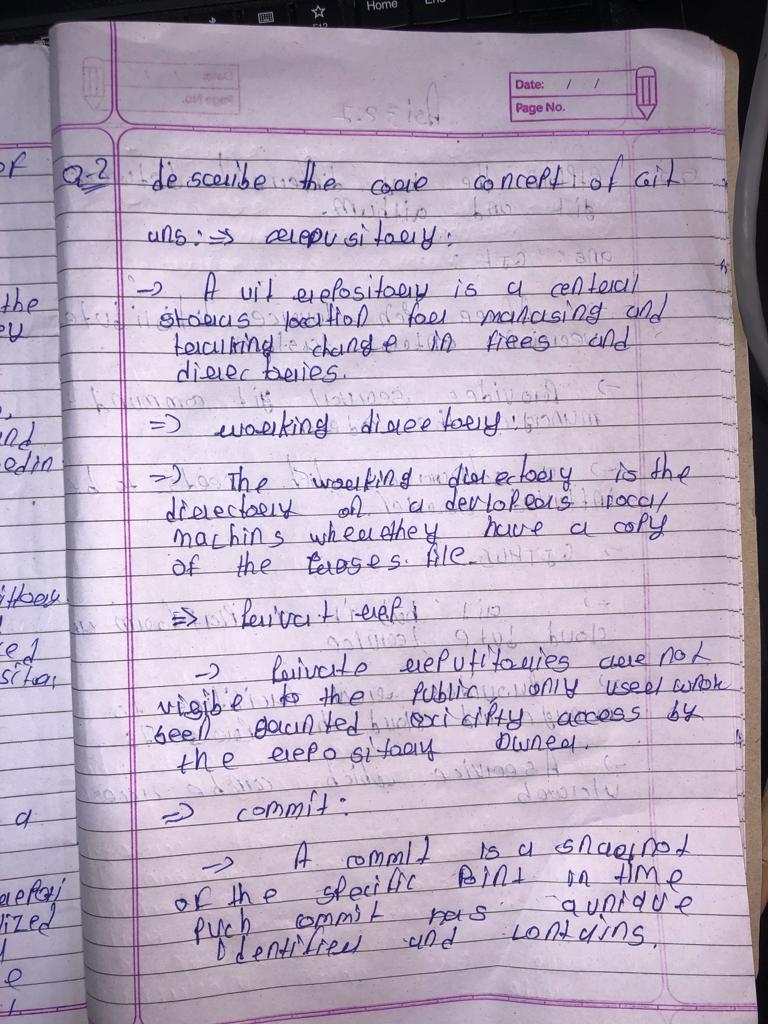 Home
Date: / /
Page No.
Q-2 describe the core concept of Git
ans: => repository:
-> A Git repository is a central
storag location for managing and
tracking change in files and
directories.
=> working directory:
=> The working directory is the
directory on a developers local
machins where they have a copy
of the files.
=> Privat rep:
-> Private repositories are not
visible to the public only user
been granted access by
the repository owner.
=> commit:
-> A commit is a
of the specific Point in time
commit has a unique
Identifier and contains.